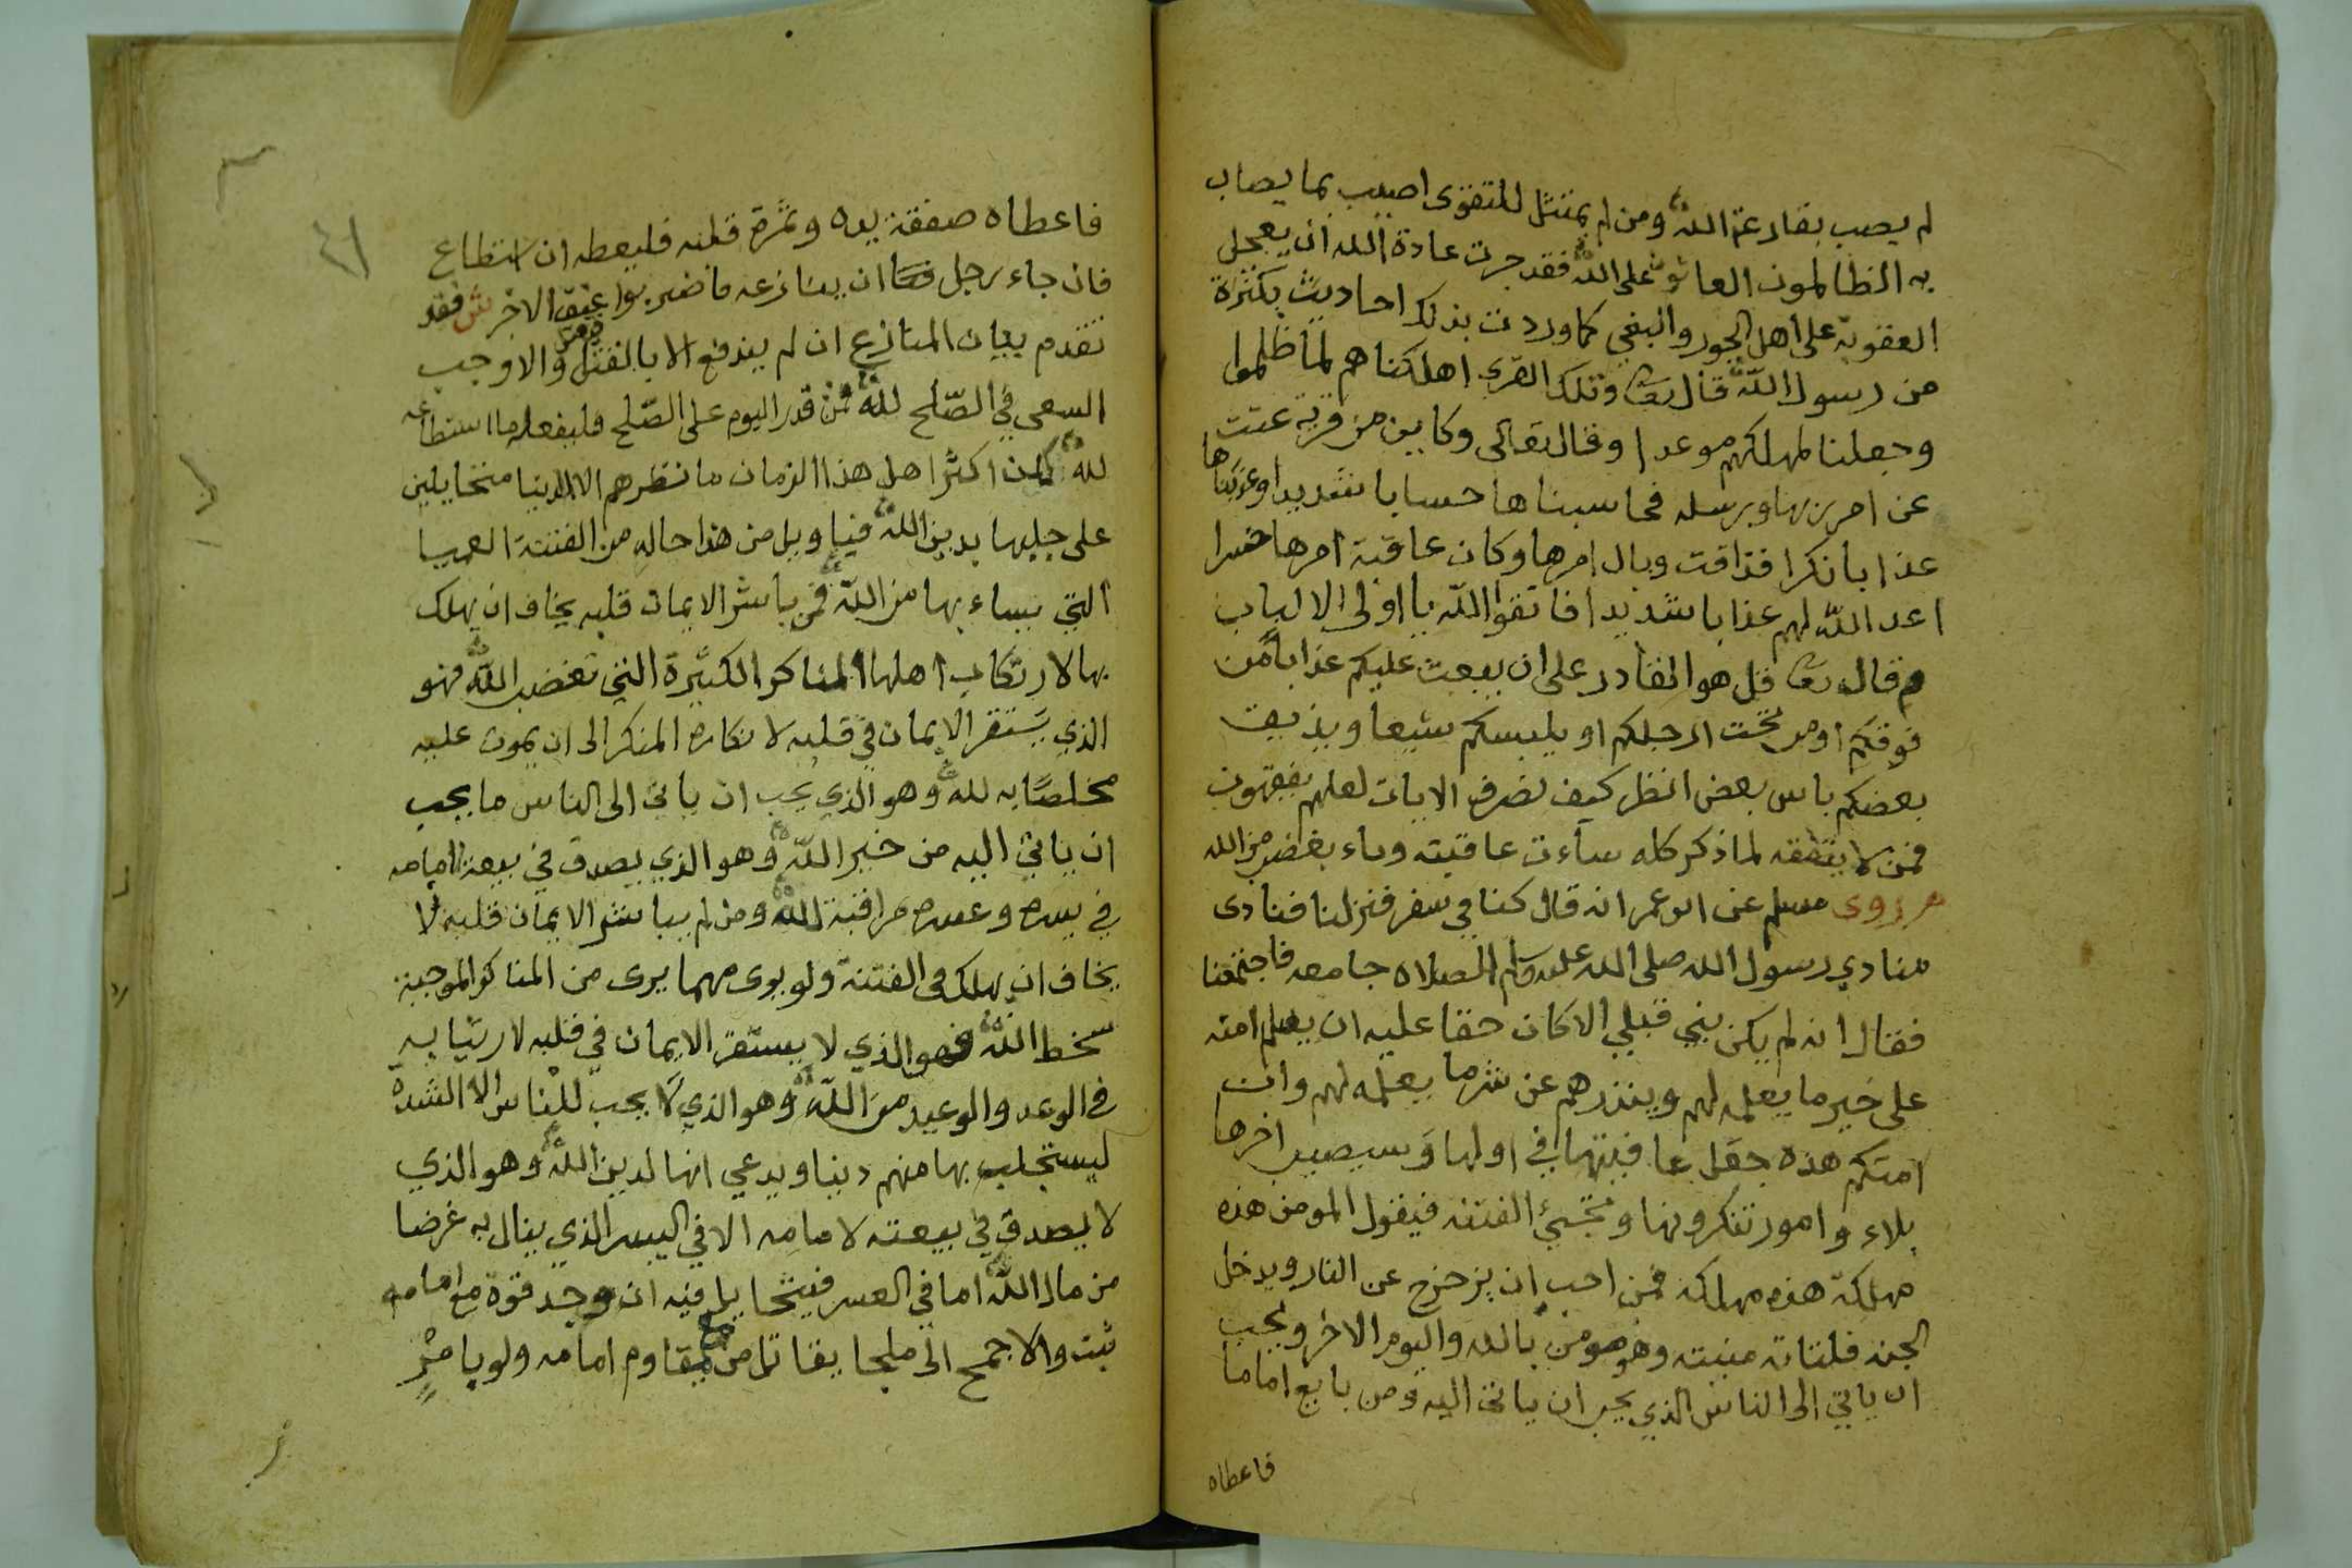 لم يصب بقارعة الله ومن لم يمتثل للتقوى اصيب بما يصاب
به الظالمون العاتون على الله فقد جرت عادة الله ان يعجل
العقوبة على اهل الجور والبغي كما وردت بذلك احاديث بكثرة
من رسول الله قال تعا وتلك القرى اهلكناهم لما ظلموا
وجعلنا لمهلكهم موعدا وقال تعالى وكاين من قرية عتت
عن امر ربها ورسله فحاسبناها حسابا شديدا وعذبناها
عذابا نكرا فذاقت وبال امرها وكان عاقبة امرها خسرا
اعد الله لهم عذابا شديدا فاتقوا الله يا اولى الالباب
وقال تعا قل هو القادر على ان يبعث عليكم عذابا من
فوقكم او من تحت ارجلكم او يلبسكم شيعا ويذيق
بعضكم باس بعض انظر كيف نصرف الايات لعلهم يفقهون
فمن لا يتفقه لما ذكر كله ساءت عاقبته وباء بغضب من الله
روى مسلم عن ابن عمر انه قال كنا في سفر فنزلنا فنادى
منادي رسول الله صلى الله عليه وسلم الصلاه جامعه فاجتمعنا
فقال انه لم يكن نبي قبلي الا كان حقا عليه ان يعلم امته
على خير ما يعلمه لهم وينذرهم عن شر ما يعلمه لهم وان
امتكم هذه جعل عافيتها في اولها وسيصيب اخرها
بلاء وامور تنكرونها وتجيئ الفتنه فيقول المومن هذه
مهلكة هذه مهلكة فمن احب ان يزحزح عن النار ويدخل
الجنه فلتاته منيته وهو مومن بالله واليوم الاخر ويجب
ان ياتي الى الناس الذي يحب ان ياتى اليه ومن بايع اماما
فاعطاه
٤١
فاعطاه صفقة يده وثمرة قلبه فليعطه ان استطاع
فان جاء رجل ان ينازعه فاضربوا عنق الاخر ش فقد
تقدم بيان المنازع ان لم يندفع الا بالقتل والا وجب
السعى في الصلح لله فمن قدر اليوم على الصلح فليفعله ما استطاعه
لله اكثر اهل هذا الزمان ما نظرهم الا الدنيا متخايلين
على جلبها بدين الله فيا ويل من هذا حاله من الفتنة العميا
التي يساء بها من الله فمن باشر الايمان قلبه يخاف ان يهلك
بها لارتكاب اهلها المناكر الكثيرة التي تغضب الله فهو
الذي يستقر الايمان في قلبه لانكاره المنكر الى ان يموت عليه
مخلصا به لله وهو الذي يحب ان ياتى الى الناس ما يحب
ان ياتي اليه من خير الله وهو الذي يصدق في بيعة امامه
في يسره وعسره مراقبة لله ومن لم يباشر الايمان قلبه لا
يخاف ان يهلك في الفتنة ولو يرى مهما يرى من المناكر الموجبة
سخط الله فهو الذي لا يستقر الايمان في قلبه لارتيابه
في الوعد والوعيد من الله وهو الذي لا يحب للناس الا الشدة
ليستجلب بها منهم دينا ويدعي انها لدين الله وهو الذي
لا يصدق في بيعته لامامه الا في اليسر الذي ينال به غرضا
من مال الله اما في العسر فيتحايل فيه ان وجد قوة مع امامه
ثبت والا جمح الى ملجا يقاتل من يقاوم امامه ولو بامر